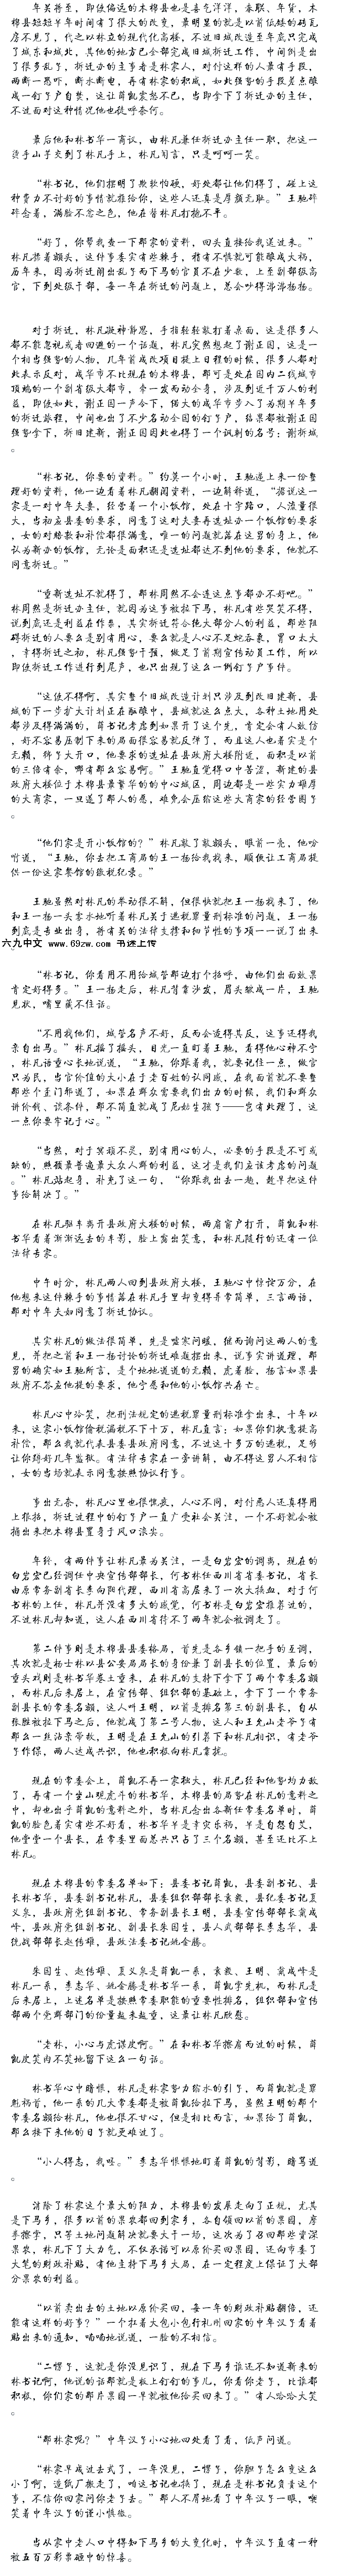 年关将至，即使偏远的木棉县也是喜气洋洋，春联、年货，木
棉县短短半年时间有了很大的改变，最明显的就是以前低矮的砖瓦
房不见了，代之以林立的现代化高楼，不过旧城改造至年底只完成
了城东和城北，其他的地方已全部完成旧城拆迁工作，中间倒是出
了很多乱子，拆迁办的主事者是林家人，对付这样的人最有手段，
两断一恐吓，断水断电，再有林家的积威，如此强势的手段差点酿
成一钉子户自焚，这让薛凯震怒不已，当即拿下了拆迁办的主任，
不过面对这种情况他也徒呼奈何。
最后他和林书华一商议，由林凡兼任拆迁办主任一职，把这一
烫手山芋交到了林凡手上，林凡闻言，只是呵呵一笑。
“林书记，他们摆明了欺软怕硬，好处都让他们得了，碰上这
种费力不讨好的事情就推给你，这些人还真是厚颜无耻。”王驰碎
碎念着，满脸不忿之色，他在替林凡打抱不平。
“好了，你帮我查一下那家的资料，回头直接给我送过来。”
林凡揉着额头，这件事委实有些棘手，稍有不慎就可能酿成大祸，
历年来，因为拆迁闹出乱子而下马的官员不在少数，上至副部级高
官，下到处级干部，每一年在拆迁的问题上，总会吵得沸沸扬扬。
对于拆迁，林凡凝神静思，手指轻轻敲打着桌面，这是很多人
都不能忽视或者回避的一个话题，林凡突然想起了谢正国，这是一
个相当强势的人物，几年前成改项目提上日程的时候，很多人都对
此表示反对，成华市不比现在的木棉县，那可是处在国内二线城市
顶端的一个副省级大都市，牵一发而动全身，涉及到近千万人的利
益，即使如此，谢正国一声令下，偌大的成华市步入了为期半年多
的拆迁旅程，中间也出了不少名动全国的钉子户，结果都被谢正国
强势拿下，拆旧建新，谢正国因此也得了一个讽刺的名号：谢拆城
。
“林书记，你要的资料。”约莫一个小时，王驰递上来一份整
理好的资料，他一边看着林凡翻阅资料，一边解释道，“据说这一
家是一对中年夫妻，经营着一个小饭馆，处在十字路口，人流量很
大，当初应县委的要求，同意了这对夫妻再选址办一个饭馆的要求
，女的对赔款和补偿都很满意，唯一的问题就落在这男的身上，他
认为新办的饭馆，无论是面积还是选址都达不到他的要求，他就不
同意拆迁。”
“重新选址不就得了，那林周然不会连这点事都办不好吧。”
林周然是拆迁办主任，就因为这事被拉下马，林凡有些哭笑不得，
说到底还是利益在作祟，其实拆迁符合绝大部分人的利益，那些阻
碍拆迁的人要么是别有用心，要么就是人心不足蛇吞象，胃口太大
，幸得拆迁之初，林凡强势干预，做足了前期宣传动员工作，所以
即使拆迁工作进行到尾声，也只出现了这么一例钉子户事件。
“这使不得啊，其实整个旧城改造计划只涉及到改旧建新，县
城的下一步扩大计划正在酝酿中，县城就这么点大，各种土地用处
都涉及得满满的，薛书记考虑到如果开了这个先，肯定会有人效仿
，好不容易压制下来的局面很容易就反弹了，而且这人也着实是个
无赖，狮子大开口，他要求的选址在县政府大楼附近，面积是以前
的三倍有余，哪有那么容易啊。”王驰直觉得口中苦涩，新建的县
政府大楼位于木棉县最繁华的的中心城区，周边都是一些实力雄厚
的大商家，一旦遂了那人的愿，难免会压缩这些大商家的经营圈子
。
“他们家是开小饭馆的？”林凡敲了敲额头，眼前一亮，他吩
咐道，“王驰，你去把工商局的王一杨给我找来，顺便让工商局提
供一份这家餐馆的缴税纪录。”
王驰虽然对林凡的举动很不解，但很快就把王一杨找来了，他
和王一杨一头雾水地听着林凡关于逃税罪量刑标准的问题，王一杨
到底是专业出身，将有关的法律支撑和细节性的事项一一说了出来
六九中文 www.69zw.com 书迷上传
。
“林书记，你看用不用给城管那边打个招呼，由他们出面效果
肯定好得多。”王一杨走后，林凡背靠沙发，眉头皱成一片，王驰
见状，嘴里藏不住话。
“不用找他们，城管名声不好，反而会适得其反，这事还得我
亲自出马。”林凡摇了摇头，目光一直盯着王驰，看得他心神不宁
，林凡语重心长地说道，“王驰，你跟着我，就要记住一点，做官
只为民，当官价值的大小在于老百姓的认同感，在我面前就不要整
那些个歪门邪道了，如果在群众需要我们出力的时候，我们和群众
讲价钱、谈条件，那不简直就成了尼姑生孩子——岂有此理了，这
一点你要牢记于心。”
“当然，对于冥顽不灵，别有用心的人，必要的手段是不可或
缺的，照顾最普遍最大众人群的利益，这才是我们应该考虑的问题
。”林凡站起身，补充了这一句，“你跟我出去一趟，趁早把这件
事给解决了。”
在林凡驱车离开县政府大楼的时候，两扇窗户打开，薛凯和林
书华看着渐渐远去的车影，脸上露出笑意，和林凡随行的还有一位
法律专家。
中午时分，林凡两人回到县政府大楼，王驰心中惊诧万分，在
他想来这件棘手的事情落在林凡手里却变得异常简单，三言两语，
那对中年夫妇同意了拆迁协议。
其实林凡的做法很简单，先是嘘寒问暖，继而询问这两人的意
见，并把之前和王一杨讨论的拆迁难题摆出来，说事实讲道理，那
男的确实如王驰所言，是个地地道道的无赖，虎着脸，扬言如果县
政府不答应他提的要求，他宁愿和他的小饭馆共存亡。
林凡心中冷笑，把刑法规定的逃税罪量刑标准拿出来，十年以
来，这家小饭馆偷税漏税不下十万，林凡直言：如果你们执意提高
补偿，那么我就代表县委县政府同意，不过这十多万的逃税，足够
让你蹲好几年监狱。有法律专家在一旁讲解，由不得这男人不相信
，女的当场就表示同意按照协议行事。
事出无奈，林凡心里也很惭疚，人心不同，对付恶人还真得用
上狠招，拆迁过程中的钉子户一直广受社会关注，一个不好就会被
捅出来把木棉县置身于风口浪尖。
年终，有两件事让林凡最为关注，一是白岩宏的调离，现在的
白岩宏已经调任中央宣传部部长，何书林任西川省省委书记，省长
由原常务副省长李向阳代理，西川省高层来了一次大换血，对于何
书林的上任，林凡并没有多大的感觉，何书林是白岩宏推荐过的，
不过林凡却知道，这人在西川省待不了两年就会被调走了。
第二件事则是木棉县县委格局，首先是各乡镇一把手的互调，
其次就是杨士林以县公安局局长的身份兼了副县长的位置，最后的
重头戏则是林书华卷土重来，在林凡的支持下拿下了两个常委名额
，而林凡后来居上，在宣传部、组织部的基础上，拿下了一个常务
副县长的常委名额，这人叫王明，以前是排名第三的副县长，自从
张胜被拉下马之后，他就成了第二号人物，这人和王允山老爷子有
那么一丝沾亲带故，王明是在王允山的引荐下和林凡相识，有老爷
子作保，两人达成共识，他也积极向林凡靠拢。
现在的常委会上，薛凯不再一家独大，林凡已经和他势均力敌
了，再有一个坐山观虎斗的林书华，木棉县的局面在林凡的意料之
中，却也出乎薛凯的意料之外，当林凡念出各新任常委名单时，薛
凯的脸色着实有些不好看，林书华早是非常乐祸，早是自怨自艾，
他堂堂一个县长，在常委里面总共只占了三个名额，甚至还比不上
林凡。
现在木棉县的常委名单如下：县委书记薛凯，县委副书记、县
长林书华，县委副书记林凡，县委组织部部长袁毅，县纪委书记夏
义泉，县政府党组副书记、常务副县长王明，县委宣传部部长莫成
峰，县政府党组副书记、副县长朱国生，县人武部部长李志华，县
统战部部长赵传雄，县政法委书记姚金腾。
朱国生、赵传雄、夏义泉是薛凯一系，袁毅、王明、莫成峰是
林凡一系，李志华、姚金腾是林书华一系，薛凯拿先机，而林凡是
后来居上，上述名单是按照常委职能的重要性排名，组织部和宣传
部两个党群部门的份量越来越重，这最让林凡欣慰。
“老林，小心与虎谋皮啊。”在和林书华擦肩而过的时候，薛
凯皮笑肉不笑地留下这么一句话。
林书华心中暗恨，林凡是林家势力缩水的引子，而薛凯就是罪
魁祸首，他一系的几大常委都是被薛凯给拉下马，虽然王明的那个
常委名额给林凡，他也很不甘心，但是相比而言，如果给了薛凯，
那么接下来他的日子就更难过了。
“小人得志，我呸。”李志华恨恨地盯着薛凯的背影，暗骂道
。
清除了林家这个最大的阻力，木棉县的发展走向了正规，尤其
是下马乡，很多以前的果农都回到家乡，各自领回以前的果园，摩
拳擦掌，只等土地问题解决就要大干一场，这次为了召回那些资深
果农，林凡下了大力气，不仅承诺可以原价买回果园，还向市委了
大笔的财政补贴，有他主持下马乡大局，在一定程度上保证了大部
分果农的利益。
“以前卖出去的土地以原价买回，每一年的财政补贴翻倍，还
能有这样的好事？”一个扛着大包小包行礼刚回家的中年汉子看着
贴出来的通知，喃喃地说道，一脸的不相信。
“二愣子，这就是你没见识了，现在下马乡谁还不知道新来的
林书记啊，他说的话那就是板上钉钉的事儿，你看你老子，比谁都
积极，你们家的那片果园一早就被他给买回来了。”有人哈哈大笑
。
“那林家呢？”中年汉子小心地四处看了看，低声问道。
“林家早成过去式了，一年没见，二愣子，你胆子怎么变这么
小了啊，造纸厂搬走了，咱这书记也换了，现在是林书记负责这个
事，不信你回家问你老子去。”那人不屑地看了中年汉子一眼，嘲
笑着中年汉子的谨小慎微。
当从家中老人口中得知下马乡的大变化时，中年汉子直有一种
被五百万彩票砸中的惊喜。